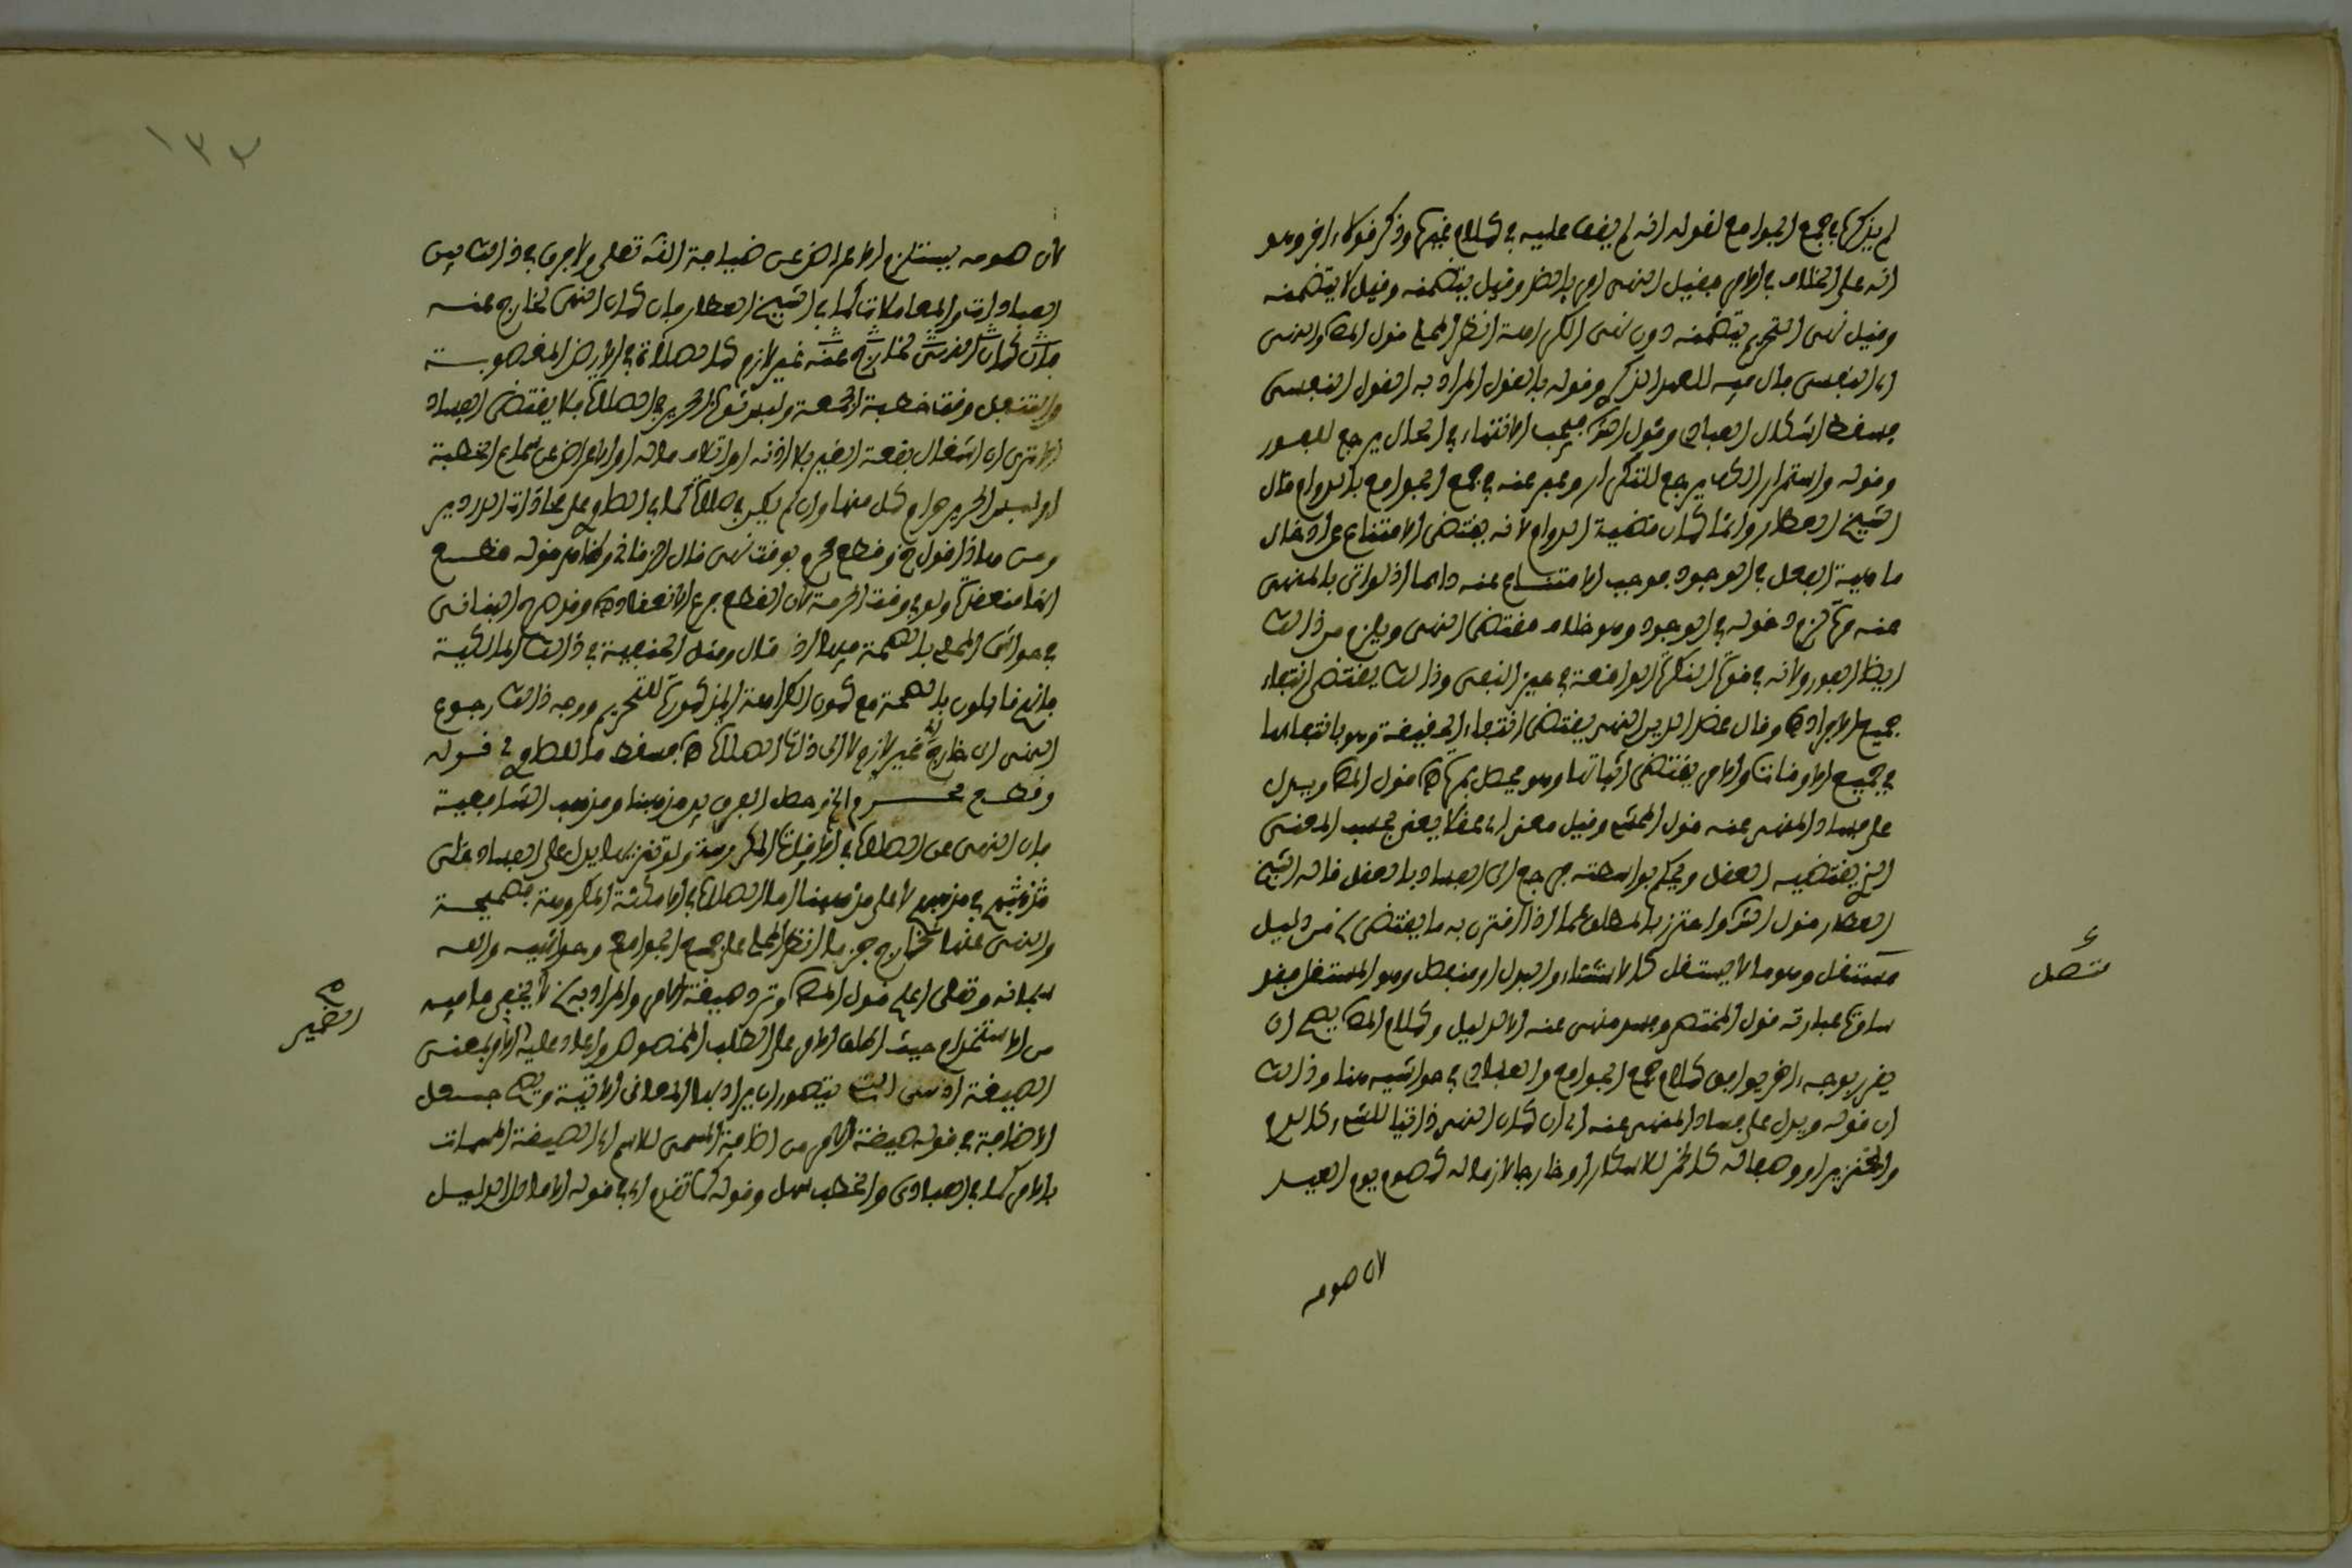 لم يذكرها في جمع الجوامع لقوله انه لم يقف عليه في كلام غيره وذكر قولا ءاخر وهو
انه على الخلاف في الامر فقيل النهي امر بالضد وقيل يتضمنه وقيل لا يتضمنه
وقيل نهي التحريم يتضمنه دون نهي الكراهة انظر المحلي قول المص والنهي
اي النفسي فال فيه للعهد الذكري وقوله بالقول المراد به القول النفسي
فسقط اشكال العبادي وقول الش فيجب الانتهاء في الحال يرجع للفور
وقوله واستمرار الكف يرجع للتكرار وعبر عنه في جمع الجوامع بالدوام قال
الشيخ العطار وانما كان قضية الدوام لانه يقتضي الامتناع عن ادخال
ماهية الفعل في الوجود فوجب الامتناع عنه دائما اذ لو اتى بالمنهي
عنه مرة لزم دخوله في الوجود وهو خلاف مقتضى النهي ويلزم من ذالك
ايضا الفور ولانه في قوة النكرة الواقعة في حيز النفي وذالك يقتضي انتفاء
جميع الافراد اه وقال عضد الدين النهي يقتضي انتفاء الحقيقة وهو بانتفائها
في جميع الاوقات والامر يقتضي اثباتها وهو يحصل بمرة اه قول المص ويدل
على فساد المنهي عنه قول المحشي وقيل معنى اي عقلا يعني بحسب المعنى
الذي يقتضيه العقل ويحكم بواسطته فرجع الى الفساد بالعقل قاله الشيخ
العطار قول الش واحترز بالمطلق عما اذا اقترن به ما يقتضي الخ من دليل
مستقل وهو ما لا يستقل كالاستثناء والبدل او منفصل وهو المستقل فقو
ساوت عبارته قول المختصر وفسد منهي عنه الا لدليل وكلام المص يصح ان
يقرر بوجه ءاخر يوافق كلام جمع الجوامع والعبادي في حواشيه هنا وذالك
ان قوله ويدل على فساد المنهي عنه اي ان كان النهي ذاتيا للشيء كالدم
والخنزير او وصفا له كالخمر للاسكار او خارجا لازما له كصوم يوم العيد
لان صومه
متصل
١٣٢
لان صومه يستلزم الاعراض عن ضيافة الله تعلى ولا فرق في ذالك بين
العبادات والمعاملات كما في الشيخ العطار فان كان النهي لخارج عنه
فان كان النهي لخارج عنه غير لازم كالصلاة في الارض المغصوبة
والتنفل وقت خطبة الجمعة ولبس ثوب الحرير في الصلاة فلا يقتضي الفساد
الا ترى ان اشغال بقعة الغير بلا اذنه او اتلاف ماله او الاعراض عن سماع الخطبة
او لبس الحرير حرام كل منها وان لم يكن في صلاة كما في الصاوي على محاذات الدردير
ومن هاذا قول خ وقطع محرم بوقت نهي قال الزرقاني وظاهر قوله قطع
انها منعقدة ولو في وقت الحرمة لان القطع فرع الانعقاد اه وقد صرح البناني
في حواشي المحلي بالصحة فيها اذ قال ومثل الحنفية في ذالك المالكية
فانهم قائلون بالصحة مع كون الكراهة المذكورة للتحريم ووجه ذالك رجوع
النهي الى خارج غير لازم لا الى ذات الصلاة اه فسقط ما للصاوي في قوله
وقطع محرم الخ وحصل الفرق بين مذهبنا ومذهب الشافعية
فان النهي عن الصلاة في الاوقات المكروهة ولو تنزيها يدل على الفساد على
مذهبهم لا على مذهبنا اما الصلاة في الامكنة المكروهة فصحيحة
والنهي عنها لخارج جزما انظر المحلي على جمع الجوامع وحواشيه والله
سبحانه وتعلى اعلم قول المص وترد صيغة الامر والمراد به الخ لا يخفى ما فيه
من الاستخدام حيث اطلق الامر على الطلب المخصوص واعاد عليه الامر بمعنى
الصيغة اذ هي التي يتصور ان يراد بها المعاني الاتية ويصح جعل
الاضافة في قوله صيغة الامر من اضافة المسمى للاسم اي الصيغة المسمات
بالامر كما في العبادي والخطب سهل وقوله كما تقدم اي في قوله الا ما دل الدليل
الضمير صح